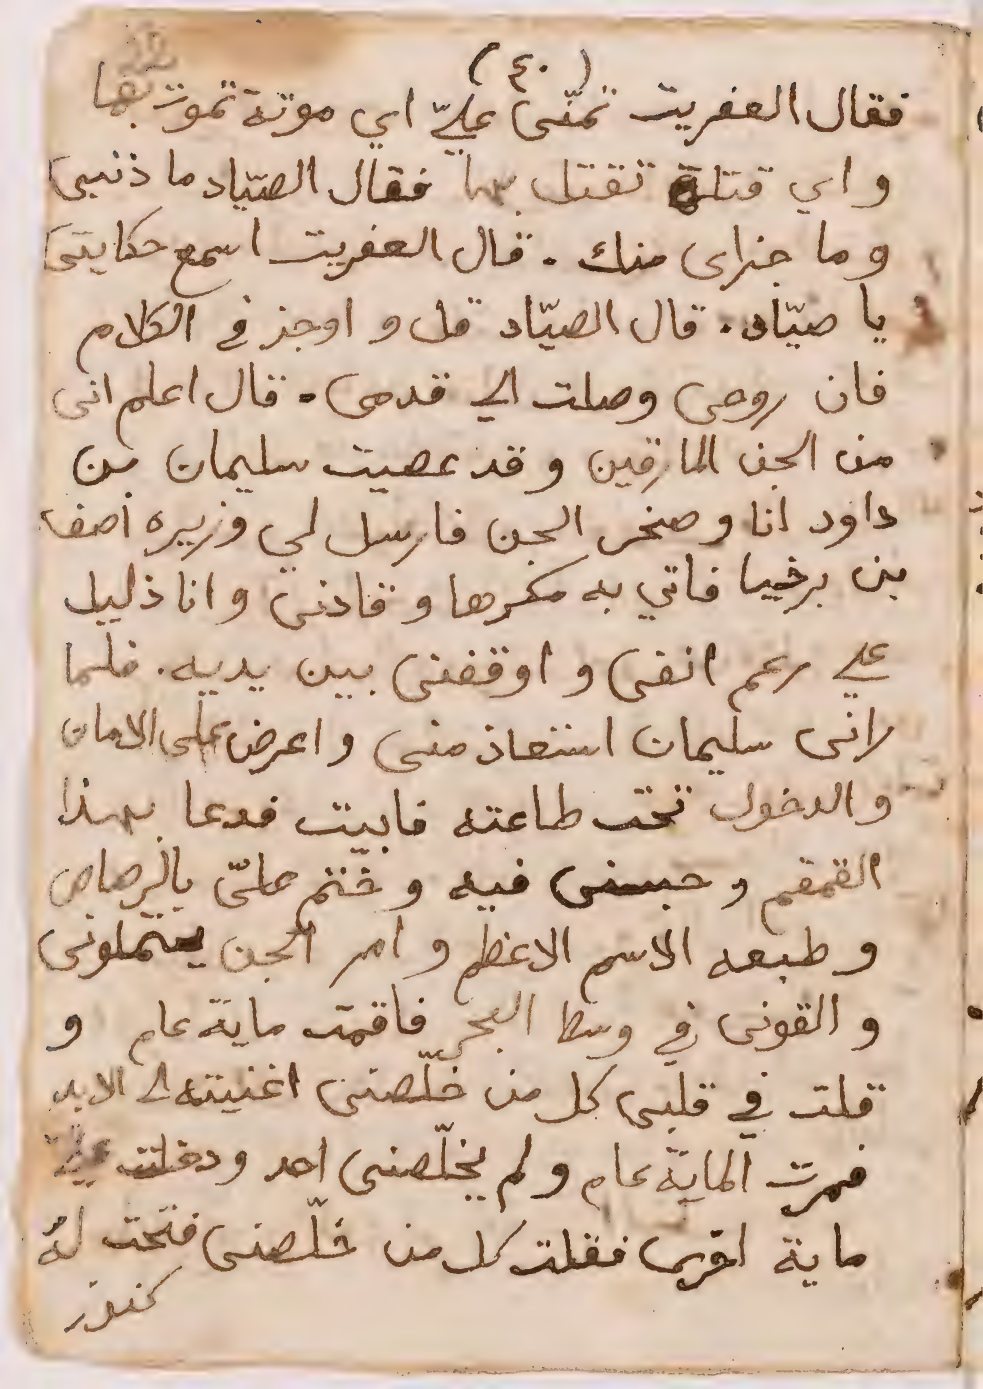 (٤٠)
فقال العفريت تمنّى عليّ اي موتة تموت بها
و اي قتلة تقتل بها فقال الصيّاد ما ذنبى
و ما جزاى منك . قال العفريت اسمع حكايتى
يا صيّاد . قال الصيّاد قل و اوجز في الكلام
فان روحى وصلت الي قدمى . قال اعلم انى
من الجن المارقين و قد عصيت سليمان بن
داود انا و صخر الجن فارسل لي وزيره اصف
بن برخيا فاتي به مكرها و قادنى و انا ذليل
علي رعم انفى و اوقفنى بين يديه . فلما
رانى سليمان استعاذ منى و اعرض على الامان
و الدخول تحت طاعته فابيت فدعا بهذا
القمقم و حبسنى فيه و ختم عليّ بالرصاص
و طبعه الاسم الاعظم و امر الجن يحتملونى
و القونى في وسط البحر فاقمت ماية عام و
قلت في قلبى كل من خلّصنى اغنيته الي الابد
فمرت الماية عام و لم يخلّصنى احد و دخلت عليّ
ماية اخرى فقلت كل من خلّصنى فتحت لهُ
كنوز